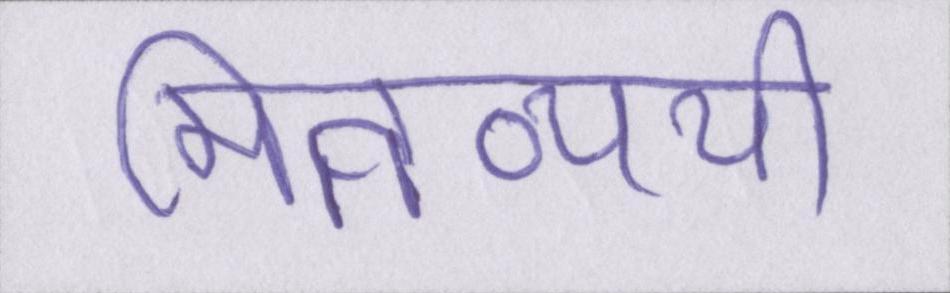 मितव्ययी